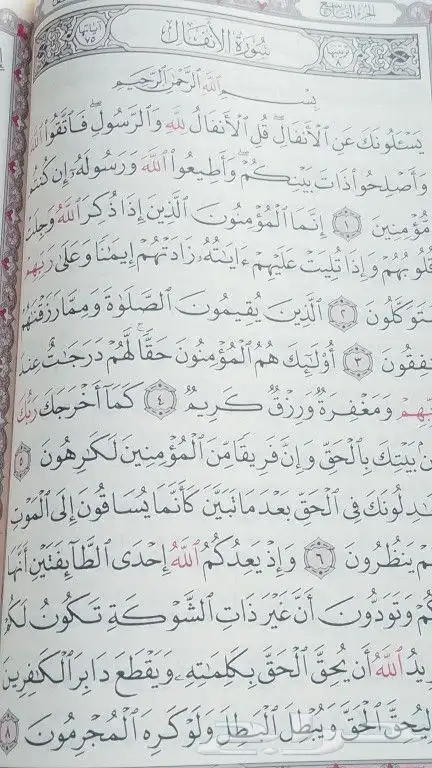 الجزء التاسع
سُورَةُ الأَنْفَالِ
ترتيبها ٨
آياتها ٧٥
بِسْمِ ٱللَّهِ ٱلرَّحْمَٰنِ ٱلرَّحِيمِ
يَسْـَٔلُونَكَ عَنِ ٱلْأَنفَالِ ۖ قُلِ ٱلْأَنفَالُ لِلَّهِ وَٱلرَّسُولِ ۖ فَٱتَّقُوا۟ ٱللَّهَ
وَأَصْلِحُوا۟ ذَاتَ بَيْنِكُمْ ۖ وَأَطِيعُوا۟ ٱللَّهَ وَرَسُولَهُۥٓ إِن كُنتُم
مُّؤْمِنِينَ ١ إِنَّمَا ٱلْمُؤْمِنُونَ ٱلَّذِينَ إِذَا ذُكِرَ ٱللَّهُ وَجِلَتْ
قُلُوبُهُمْ وَإِذَا تُلِيَتْ عَلَيْهِمْ ءَايَٰتُهُۥ زَادَتْهُمْ إِيمَٰنًا وَعَلَىٰ رَبِّهِمْ
يَتَوَكَّلُونَ ٢ ٱلَّذِينَ يُقِيمُونَ ٱلصَّلَوٰةَ وَمِمَّا رَزَقْنَٰهُمْ
يُنفِقُونَ ٣ أُو۟لَٰٓئِكَ هُمُ ٱلْمُؤْمِنُونَ حَقًّا ۚ لَّهُمْ دَرَجَٰتٌ عِندَ
رَبِّهِمْ وَمَغْفِرَةٌ وَرِزْقٌ كَرِيمٌ ٤ كَمَآ أَخْرَجَكَ رَبُّكَ
مِنۢ بَيْتِكَ بِٱلْحَقِّ وَإِنَّ فَرِيقًا مِّنَ ٱلْمُؤْمِنِينَ لَكَٰرِهُونَ ٥
يُجَٰدِلُونَكَ فِى ٱلْحَقِّ بَعْدَ مَا تَبَيَّنَ كَأَنَّمَا يُسَاقُونَ إِلَى ٱلْمَوْتِ
وَهُمْ يَنظُرُونَ ٦ وَإِذْ يَعِدُكُمُ ٱللَّهُ إِحْدَى ٱلطَّآئِفَتَيْنِ أَنَّهَا
لَكُمْ وَتَوَدُّونَ أَنَّ غَيْرَ ذَاتِ ٱلشَّوْكَةِ تَكُونُ لَكُمْ
وَيُرِيدُ ٱللَّهُ أَن يُحِقَّ ٱلْحَقَّ بِكَلِمَٰتِهِۦ وَيَقْطَعَ دَابِرَ ٱلْكَٰفِرِينَ
لِيُحِقَّ ٱلْحَقَّ وَيُبْطِلَ ٱلْبَٰطِلَ وَلَوْ كَرِهَ ٱلْمُجْرِمُونَ ٨